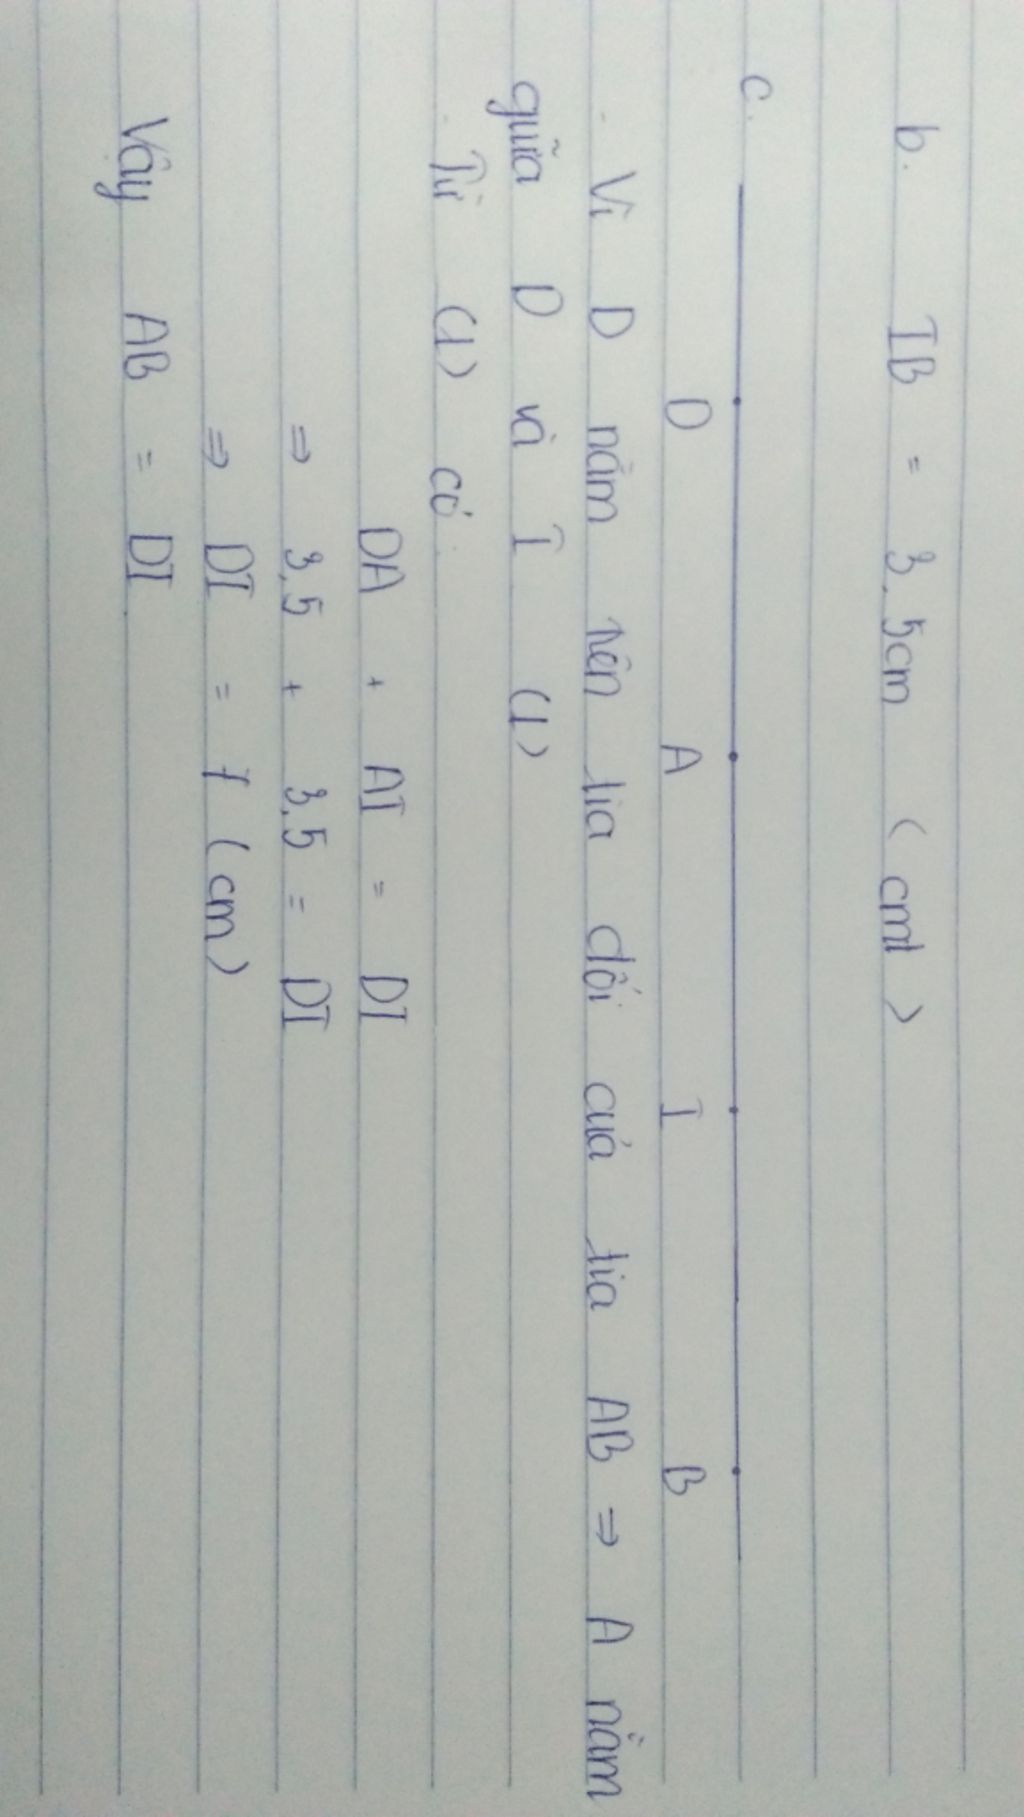 b. IB = 3,5cm (cmt)
c.
D A I B
Vì D nằm trên tia đối của tia AB => A nằm
giữa D và I (1)
Từ (1) có:
DA + AI = DI
=> 3,5 + 3,5 = DI
=> DI = 7 (cm)
Vậy AB = DI